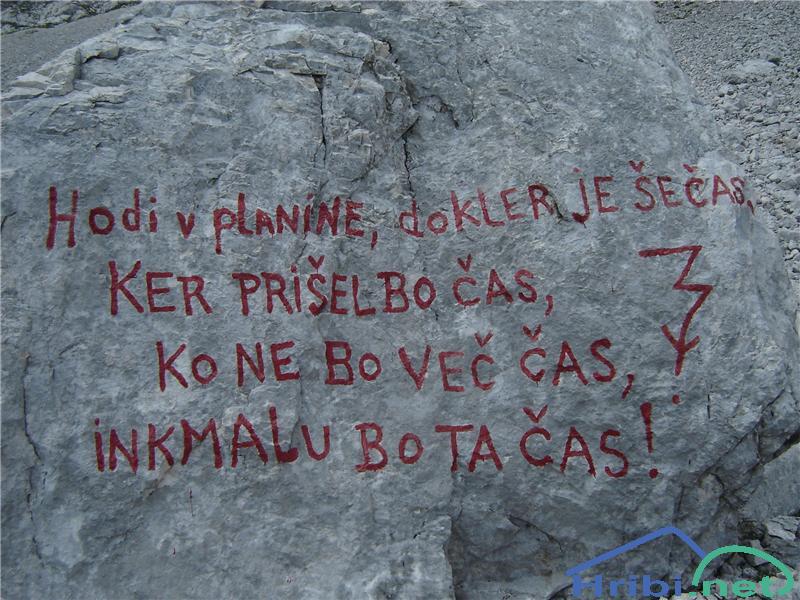 Hodi v PLANINE, dOKLER JE ŠE ČAS,
KER PRIŠEL BO ČAS,
KO NE BO VEČ ČAS,
iN KMALU BO TA ČAS!
Hribi.net